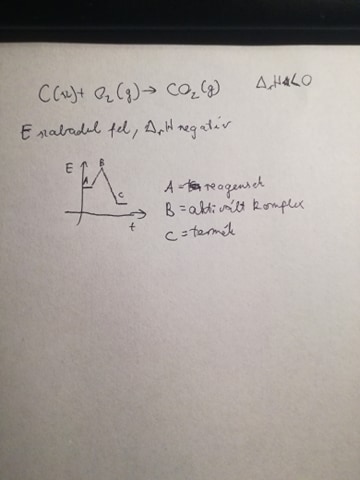 C(sz) + O₂(g) → CO₂(g) ΔᵣH<0
E szabadul fel, ΔᵣH negatív
E
B
A
C
t
A = reagensek
B = aktivált komplex
C = termék